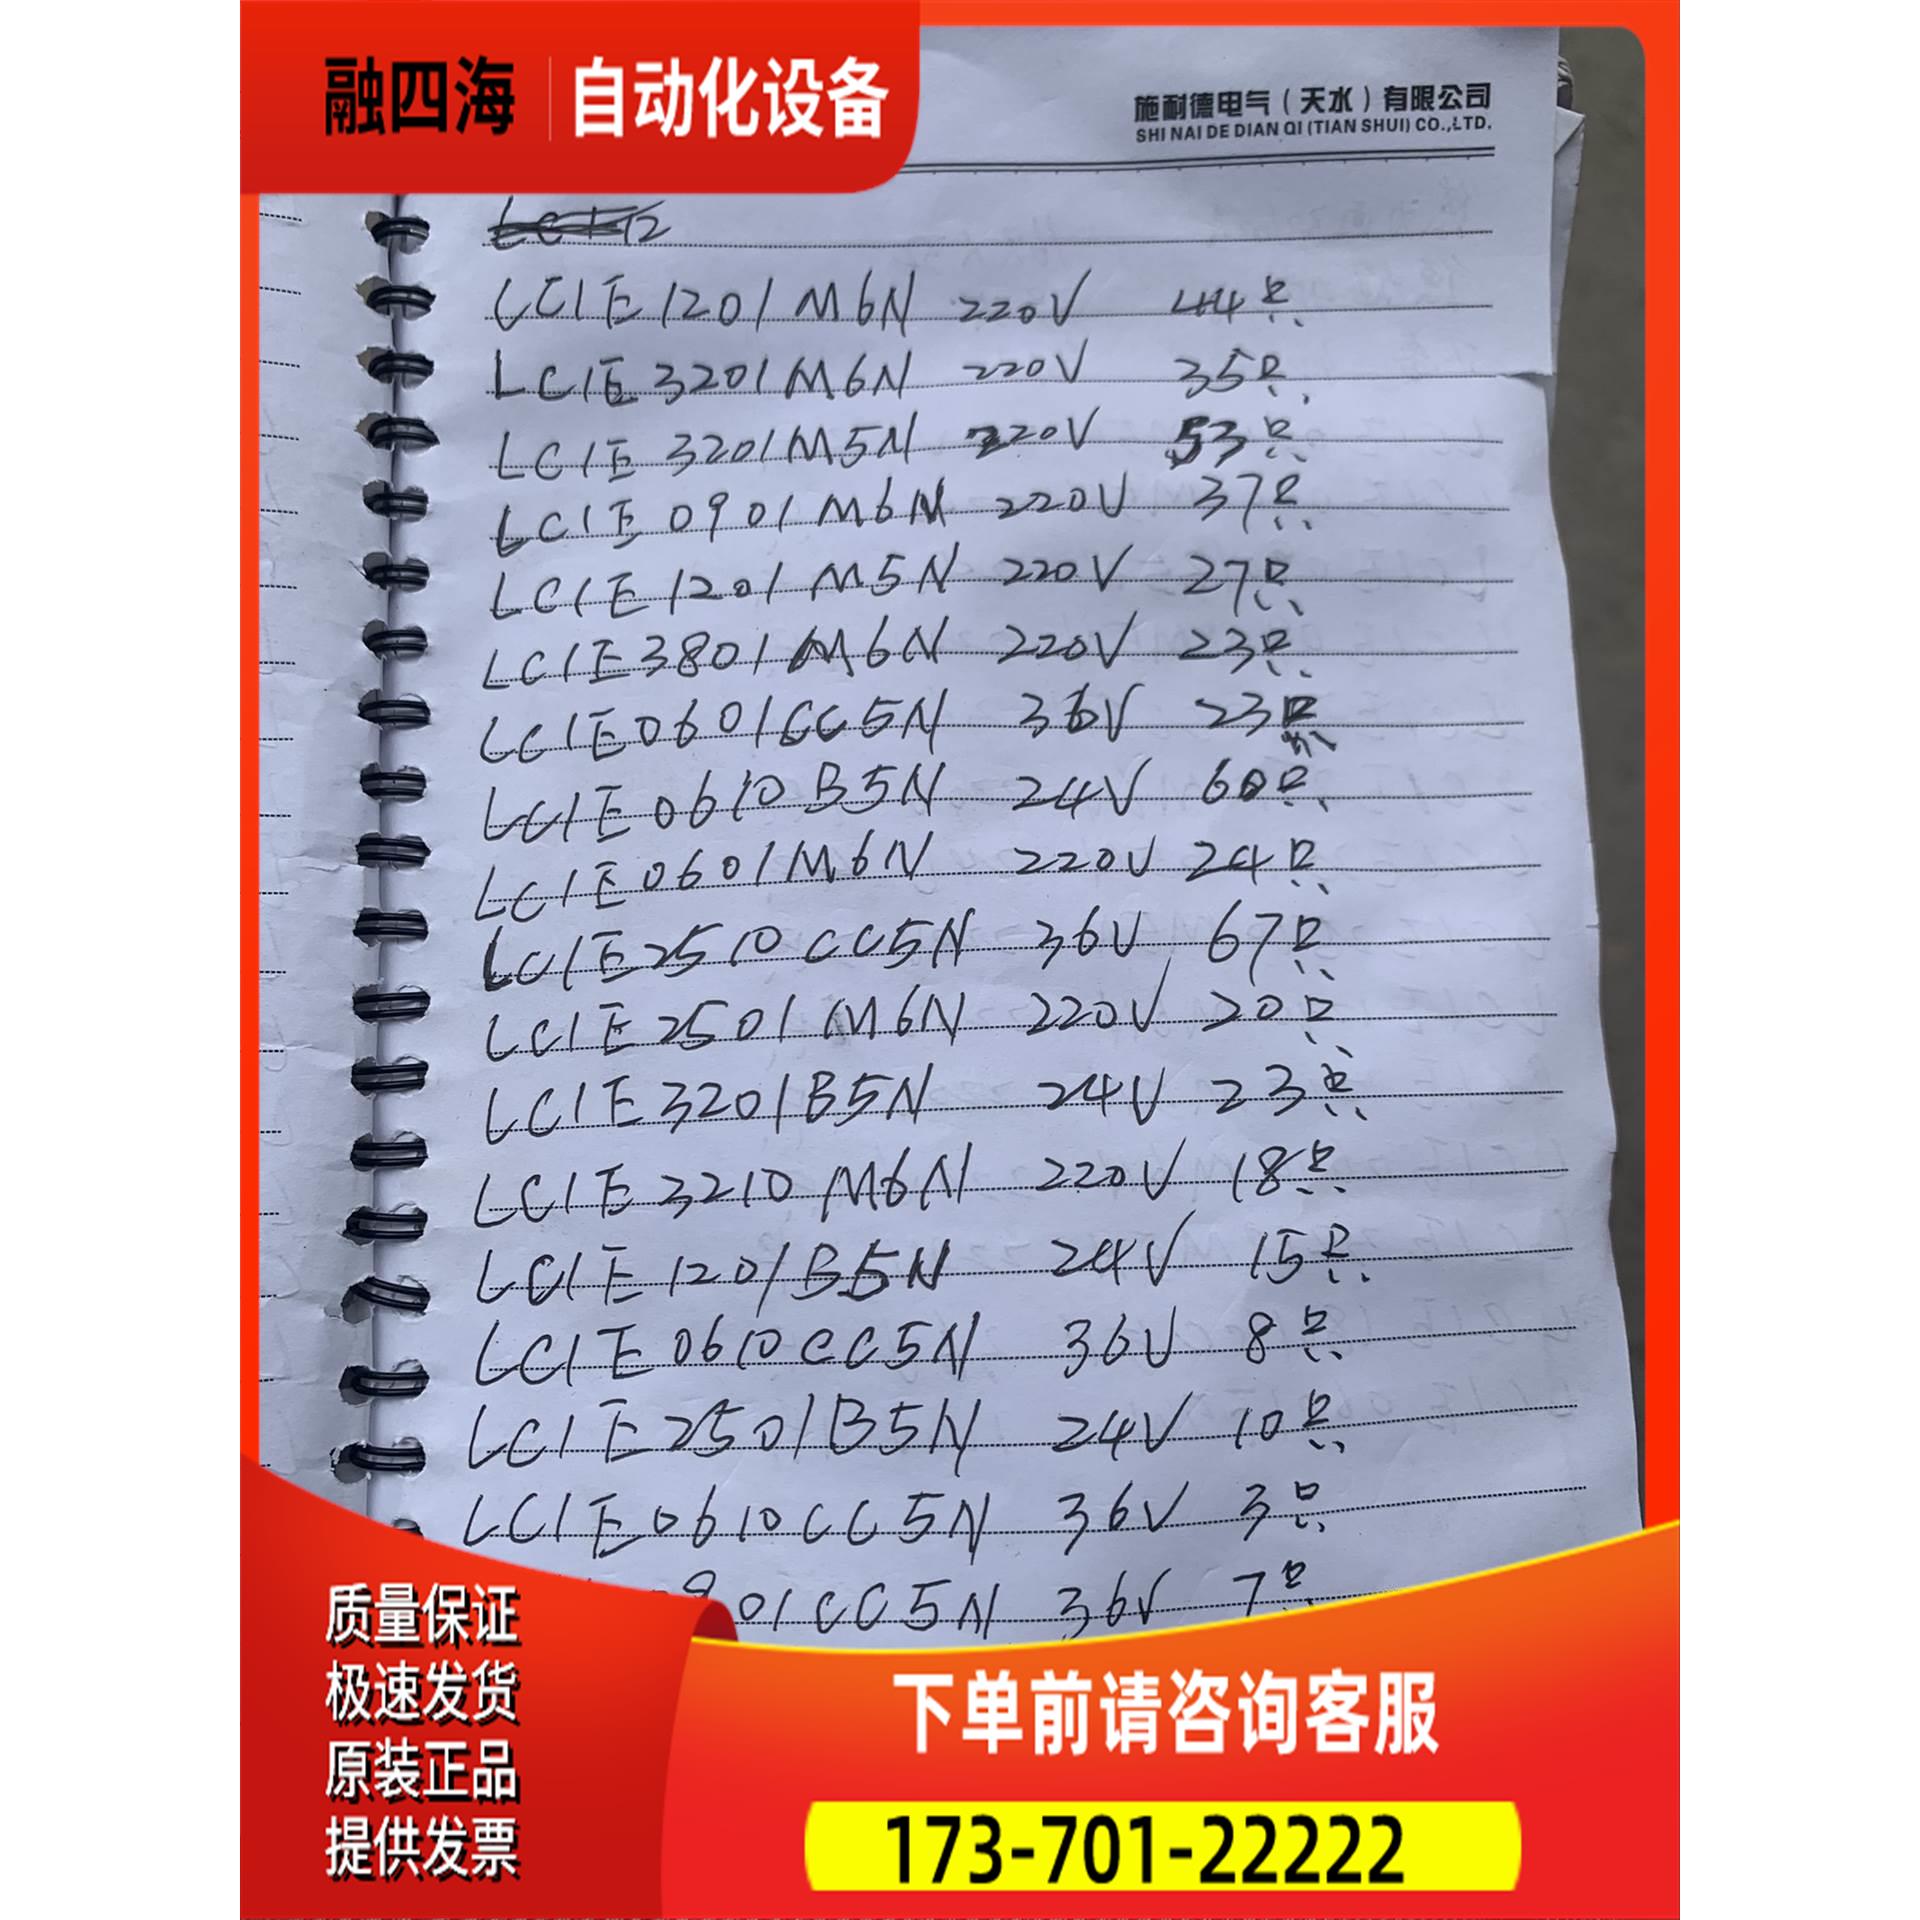 融四海 自动化设备
施耐德电气（天水）有限公司
SHI NAI DE DIAN QI (TIAN SHUI) CO.,LTD.
LC1E1201M6N 220V 44只
LC1E3201M6N 220V 35只
LC1E3201M5N 220V 53只
LC1E0901M6N 220V 37只
LC1E1201M5N 220V 27只
LC1E3801M6N 220V 23只
LC1E0601CC5N 36V 23只
LC1E0610B5N 24V 60只
LC1E0601M6N 220V 24只
LC1E2510CC5N 36V 67只
LC1E2501M6N 220V 20只
LC1E3201B5N 24V 23只
LC1E3210M6N 220V 18只
LC1E1201B5N 24V 15只
LC1E0610CC5N 36V 8只
LC1E2501B5N 24V 10只
LC1E0610CC5N 36V 3只
901CC5N 36V 7只
质量保证
极速发货
原装正品
提供发票
下单前请咨询客服
173-701-22222